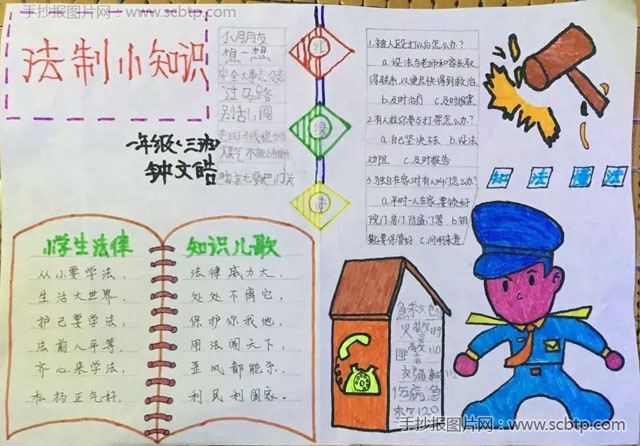 手抄报图片网：www.scbtp.com
法制小知识
一年级(三)班
钟文皓
小朋友
想一想
过马路
别乱闯
红
绿
黄
1.被人殴打以后怎么办?
a.设法与老师和家长取
得联系,以便尽快得到救治
b.及时治疗 c.及时报案
2.有人拉你参与打架怎么办?
a.自己坚决不去 b.设法
劝阻 c.及时报告
3.独自在家时有人叫门怎么办?
a.平时一人在家,要锁好
院门、房门、防盗门等 b.钥
匙要保管好 c.问明来意
知 法 懂 法
小学生法律
从小要学法,
生活大世界.
护己要学法,
法前人平等.
齐心来学法,
私扬正气好.
知识儿歌
法律威力大.
处处不离它,
保护你我他,
用法闯天下,
歪风都能杀.
利民利国家。
急救电
火警119
匪警110
伤病急
救120
手抄报图片网：www.scbtp.com